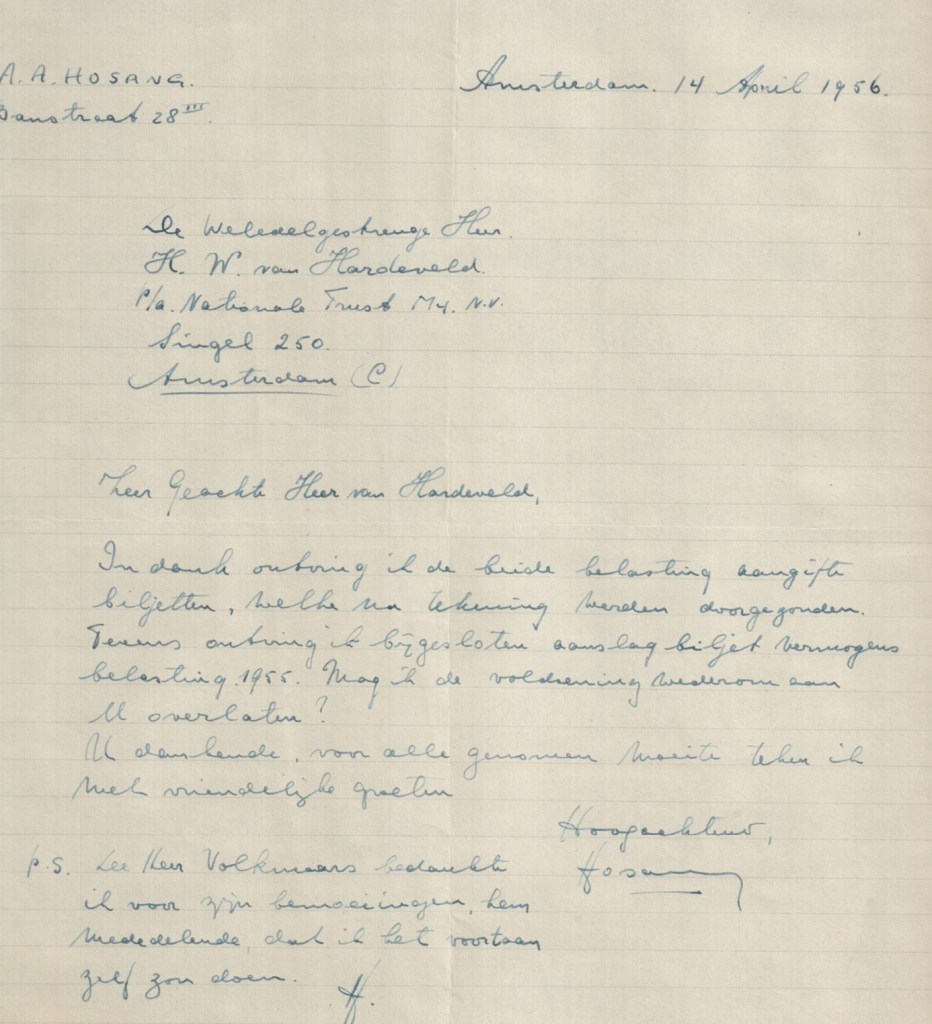 A. A. HOSANG.
Banstraat 28 III.
Amsterdam. 14 April 1956.
De Weledelgestrenge Heer.
H. W. van Hardeveld.
P/a. Nationale Trust My. N.V.
Singel 250.
Amsterdam (C)
Zeer Geachte Heer van Hardeveld,
In dank ontving ik de beide belasting aangifte
biljetten, welke na tekening werden doorgezonden.
Tevens ontving ik bijgesloten aanslag biljet vermogens
belasting 1955. Mag ik de voldoening wederom aan
U overlaten?
U dankende, voor alle genomen moeite teken ik
met vriendelijke groeten
Hoogachtend,
Hosang
p.s. De Heer Volkmaars bedankte
ik voor zijn bemoeiingen, hem
mededelende, dat ik het voortaan
zelf zou doen.
H.